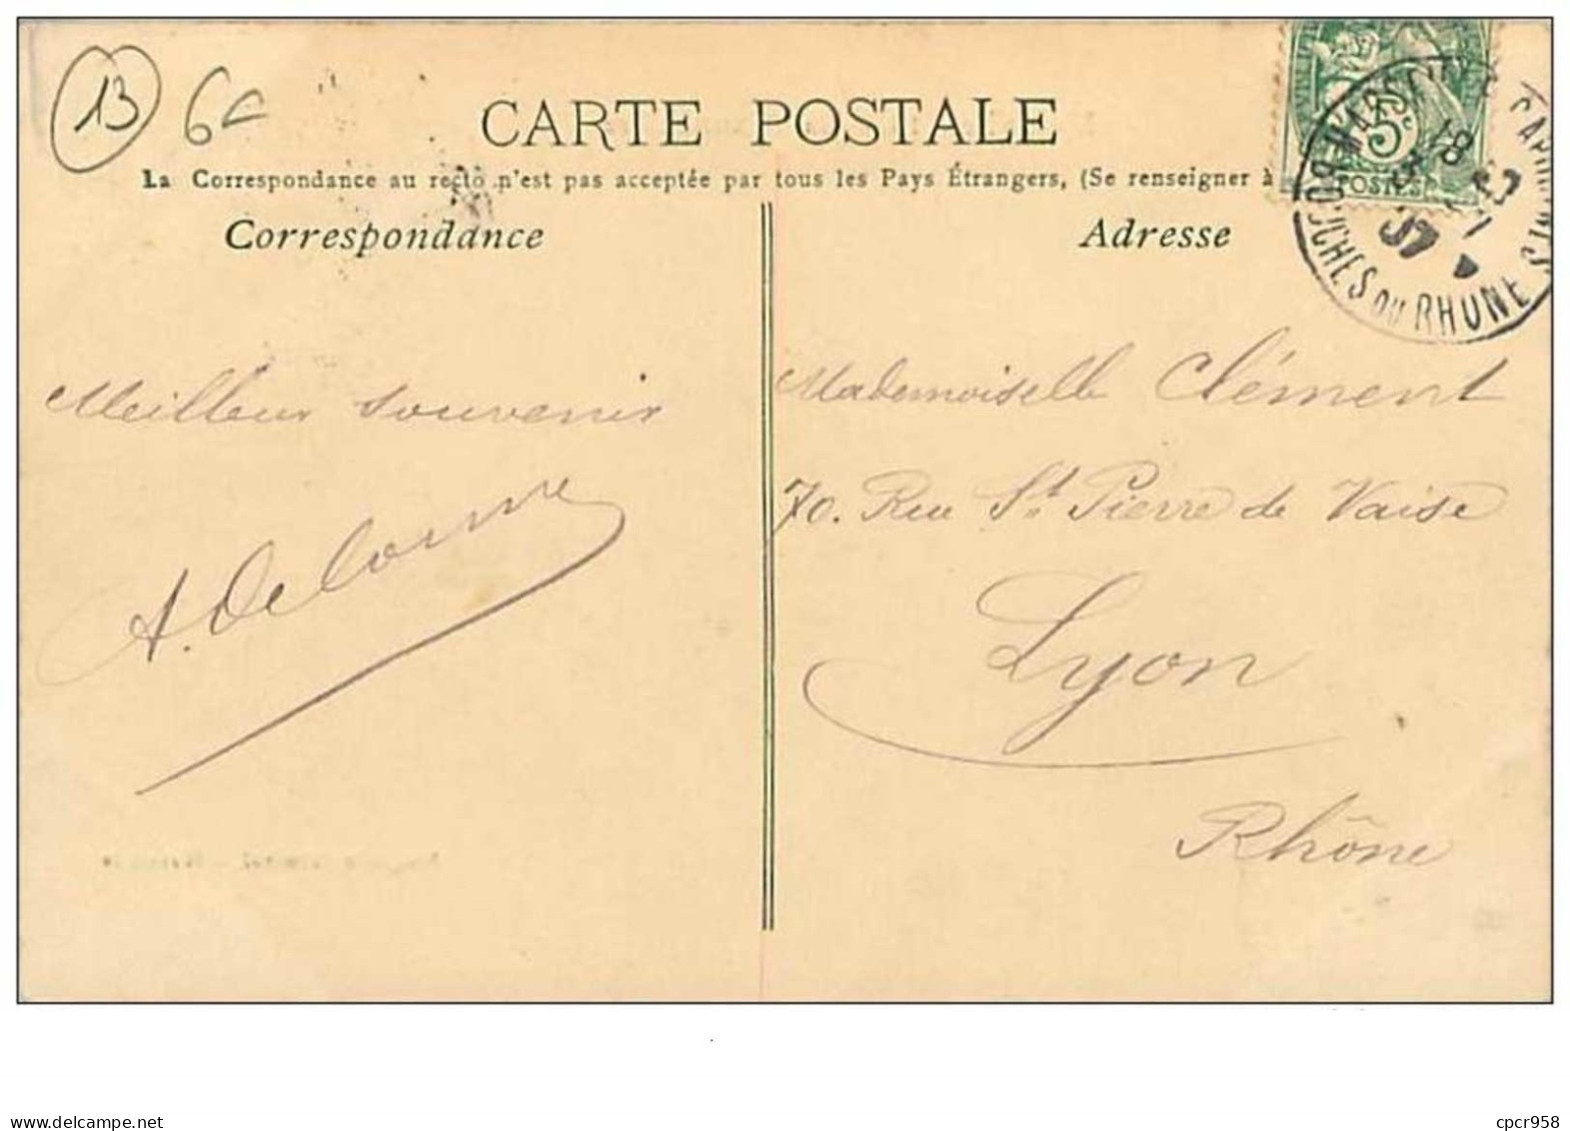 13 6€
CARTE POSTALE
La Correspondance au recto n'est pas acceptée par tous les Pays Étrangers, (Se renseigner à
Correspondance
Adresse
5c
POSTES
MARSEILLE
BOUCHES DU RHONE
18
07
Meilleur souvenir
A. Delorme
Mademoiselle Clément
70. Rue St Pierre de Vaise
Lyon
Rhône
www.delcampe.net
cpcr958